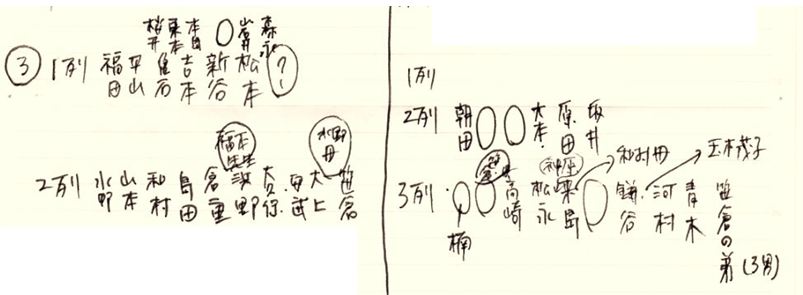 桜井 東本 本目 ○ 岩井 森永
③ 1列 福田 平山 魚石 吉本 新谷 松本 ?
福本先生 水野母
2列 水野 山本 和村 島田 倉重 波野 大上 笹倉
1列
2列 朝田 ○ ○ 大本 原田 坂井
和村母 玉木茂子
3列 ○ ○ 高崎 松永 来島 ○ 鎌谷 河村 青木 笹倉の弟(3男)
楠